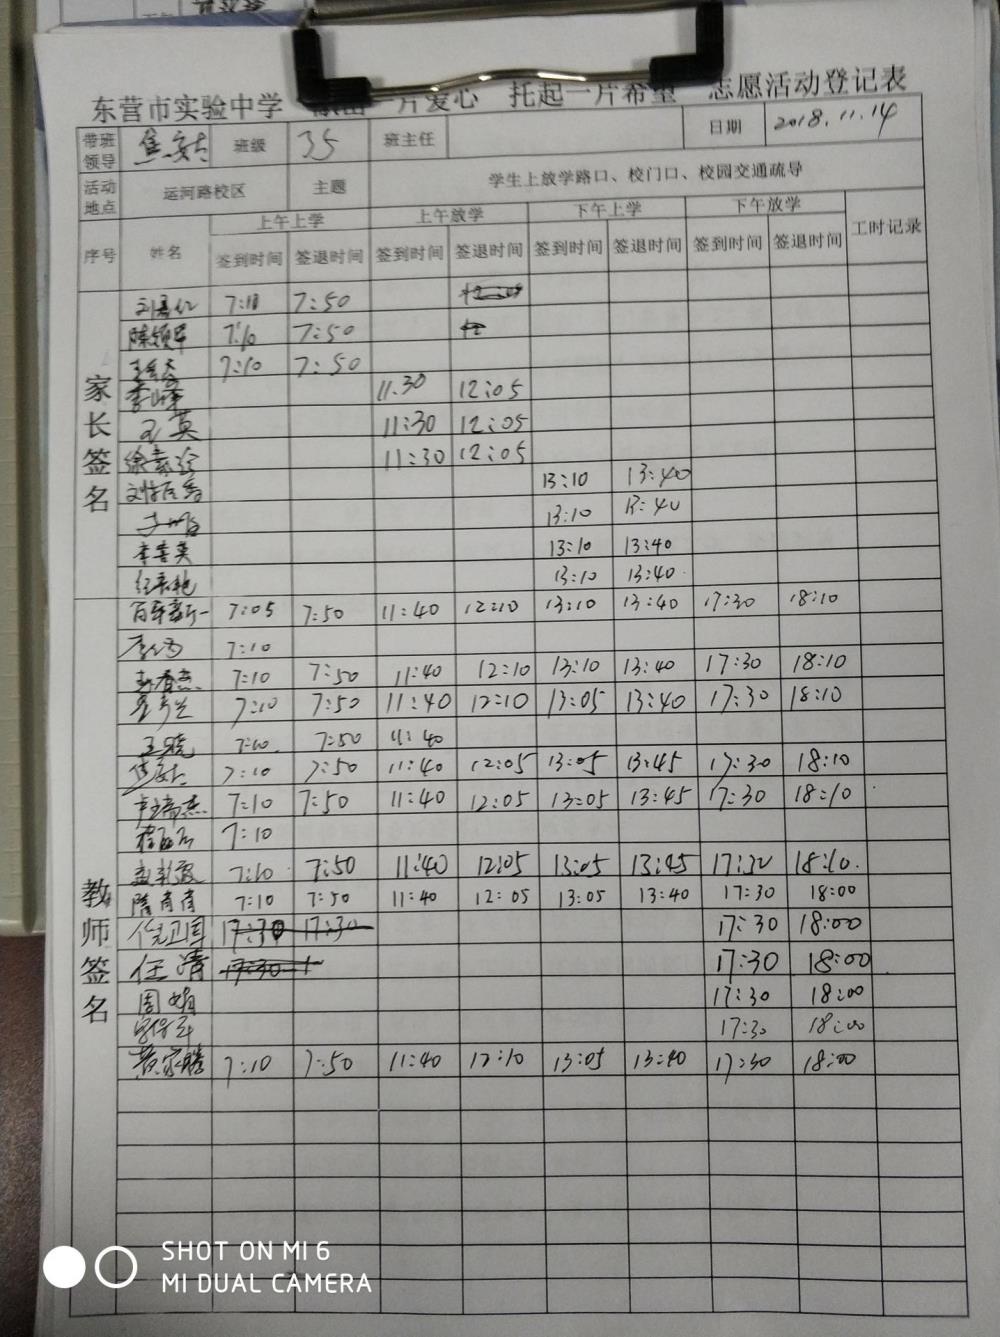 东营市实验中学 一片爱心 托起一片希望 志愿活动登记表
带班领导 班级 35 班主任 日期 2018.11.14
活动地点 运河路校区 主题 学生上放学路口、校门口、校园交通疏导
序号 姓名 上午上学 上午放学 下午上学 下午放学 工时记录
签到时间 签退时间 签到时间 签退时间 签到时间 签退时间 签到时间 签退时间
家长签名
7:10 7:50
7:10 7:50
7:10 7:50
李峰 11:30 12:05
王英 11:30 12:05
11:30 12:05
13:10 13:40
13:10 13:40
李喜英 13:10 13:40
13:10 13:40
教师签名
7:05 7:50 11:40 12:10 13:10 13:40 17:30 18:10
7:10
7:10 7:50 11:40 12:10 13:10 13:40 17:30 18:10
7:10 7:50 11:40 12:10 13:05 13:40 17:30 18:10
王晓 7:10 7:50 11:40
7:10 7:50 11:40 12:05 13:05 13:45 17:30 18:10
7:10 7:50 11:40 12:05 13:05 13:45 17:30 18:10
7:10
7:10 7:50 11:40 12:05 13:05 13:45 17:30 18:10
隋肖肖 7:10 7:50 11:40 12:05 13:05 13:40 17:30 18:00
倪卫国 17:30 17:30 17:30 18:00
任清 17:30 17:30 18:00
周娟 17:30 18:00
17:30 18:00
黄家腾 7:10 7:50 11:40 12:10 13:05 13:40 17:30 18:00
SHOT ON MI 6
MI DUAL CAMERA